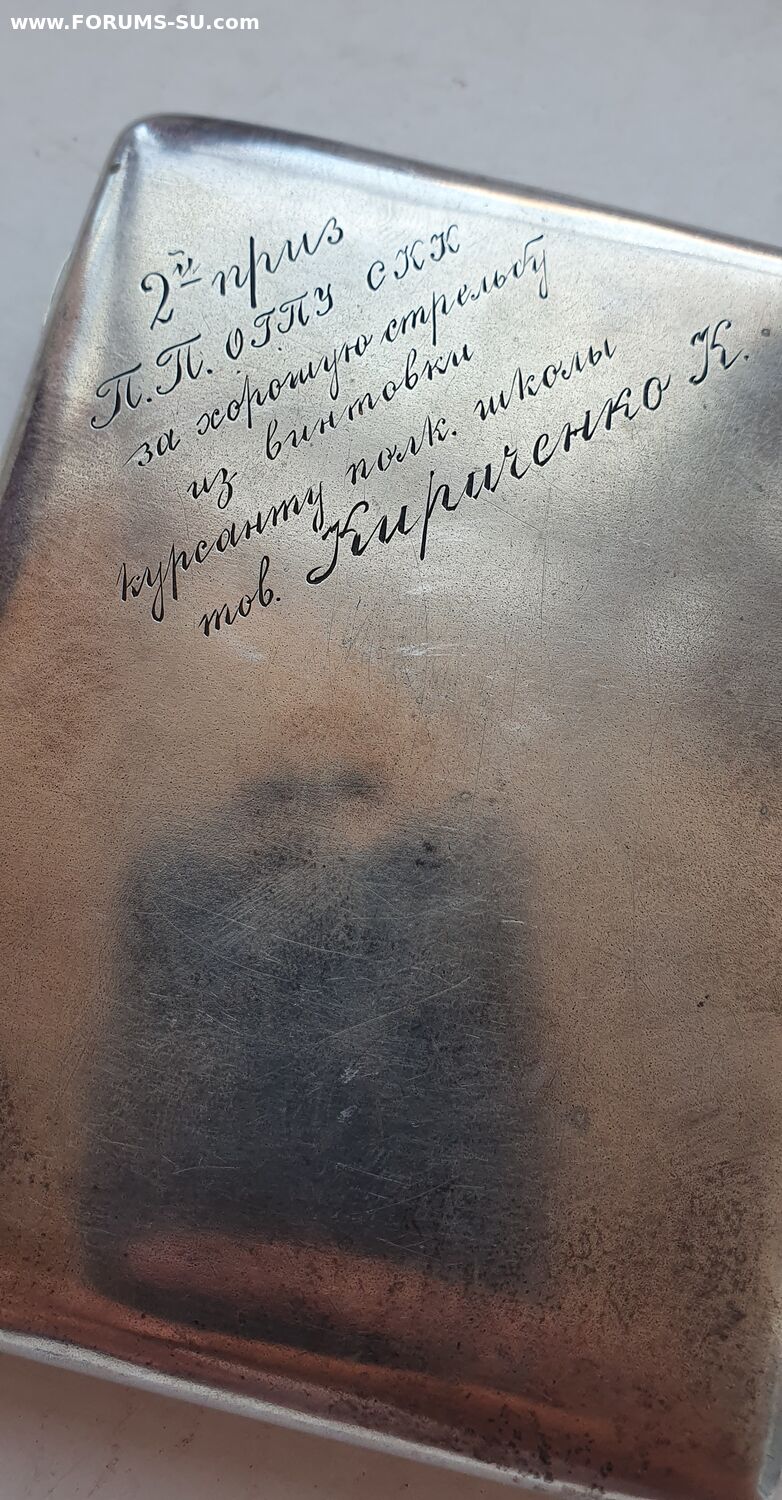 www.FORUMS-SU.com
2й приз
П.П. ОГПУ СКК
за хорошую стрельбу
из винтовки
курсанту полк. школы
тов. Кириченко К.